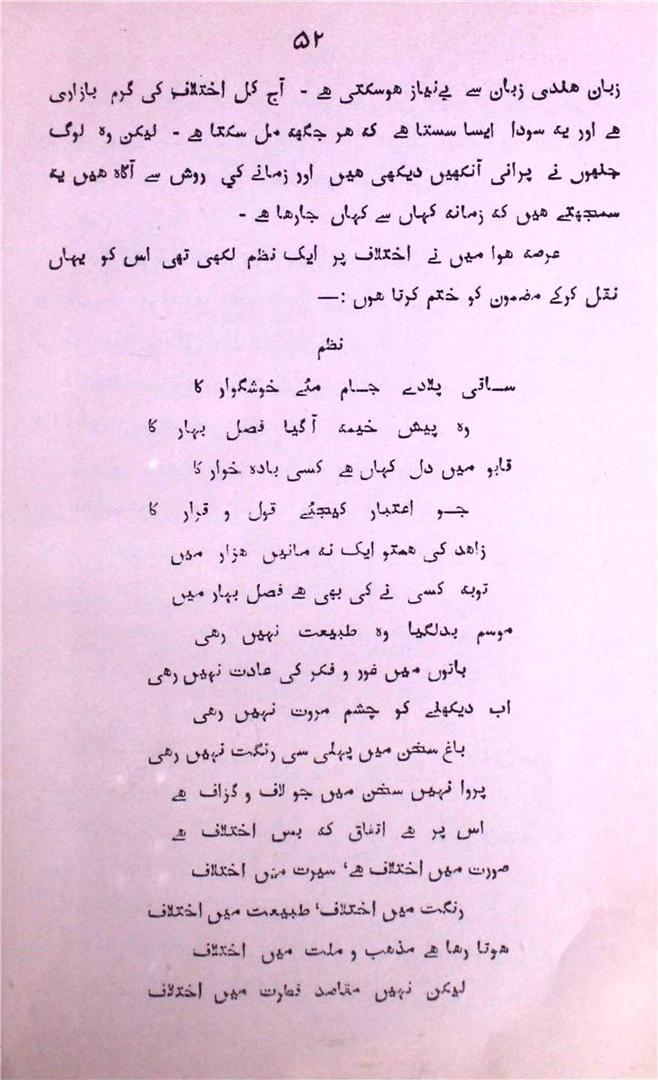 ۵۲
زبان هندی زبان سے بےنیاز هوسکتی هے - آج کل اختلاف کی گرم بازاری
هے اور یه سودا ایسا سستا هے که هر جگهه مل سکتا هے - لیکن وہ لوگ
جنهوں نے پرانی آنکھیں دیکھی هیں اور زمانے کي روش سے آگاہ هیں یه
سمجھتے هیں که زمانه کہاں سے کہاں جارها هے -
عرصه هوا میں نے اختلاف پر ایک نظم لکھی تھی اس کو یہاں
نقل کرکے مضمون کو ختم کرتا هوں :—
نظم
ساقی پلادے جام مئے خوشگوار کا
وہ پیش خیمه آگیا فصل بہار کا
قابو میں دل کہاں هے کسی بادہ خوار کا
جو اعتبار کیجئے قول و قرار کا
زاهد کی همتو ایک نه مانیں هزار میں
توبه کسی نے کی بھی هے فصل بہار میں
موسم بدلگیا وہ طبیعت نہیں رهی
باتوں میں غور و فکر کی عادت نہیں رهی
اب دیکھنے کو چشم مروت نہیں رهی
باغ سخن میں پہلی سی رنگت نہیں رهی
پروا نہیں سخن میں جو لاف و گزاف هے
اس پر هے اتفاق که بس اختلاف هے
صورت میں اختلاف هے، سیرت میں اختلاف
رنگت میں اختلاف، طبیعت میں اختلاف
هوتا رها هے مذهب و ملت میں اختلاف
لیکن نہیں مقاصد فطرت میں اختلاف